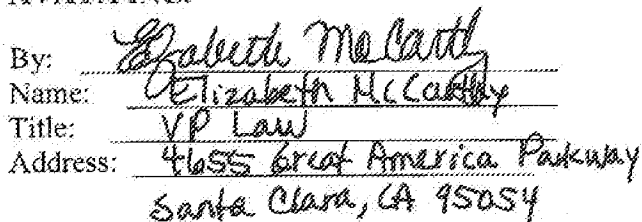 By: Elizabeth McCarthy
Name: Elizabeth McCarthy
Title: VP Law
Address: 4655 Great America Parkway
Santa Clara, CA 95054